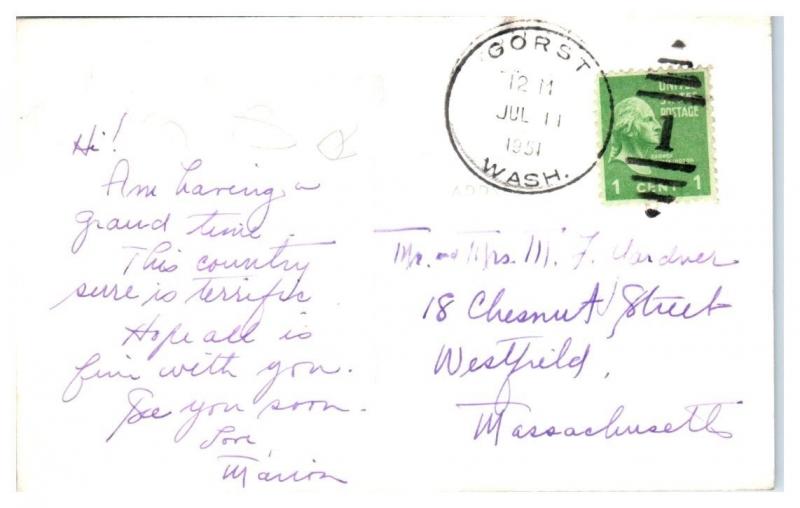 GORST
12 M
JUL 11
1951
WASH.
UNITED
STATES
POSTAGE
1
1 CENT 1
Hi!
Am having a
grand time.
This country
sure is terrific.
Hope all is
fine with you.
See you soon.
Love,
Marion
Mr. and Mrs. M. F.
18 Chesnut Street
Westfield,
Massachusetts